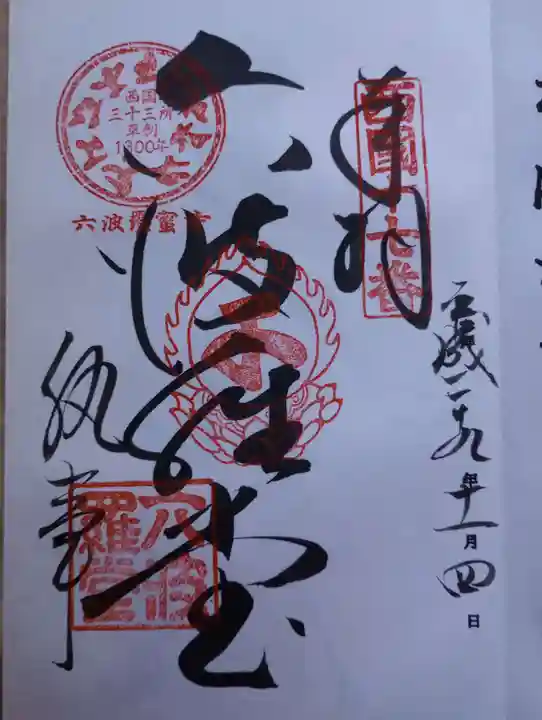 奉拝
西國十七番
平成二九年十一月四日
六波羅堂
西国
三十三所
草創
1300年
六波羅蜜寺
執事
六波
羅堂